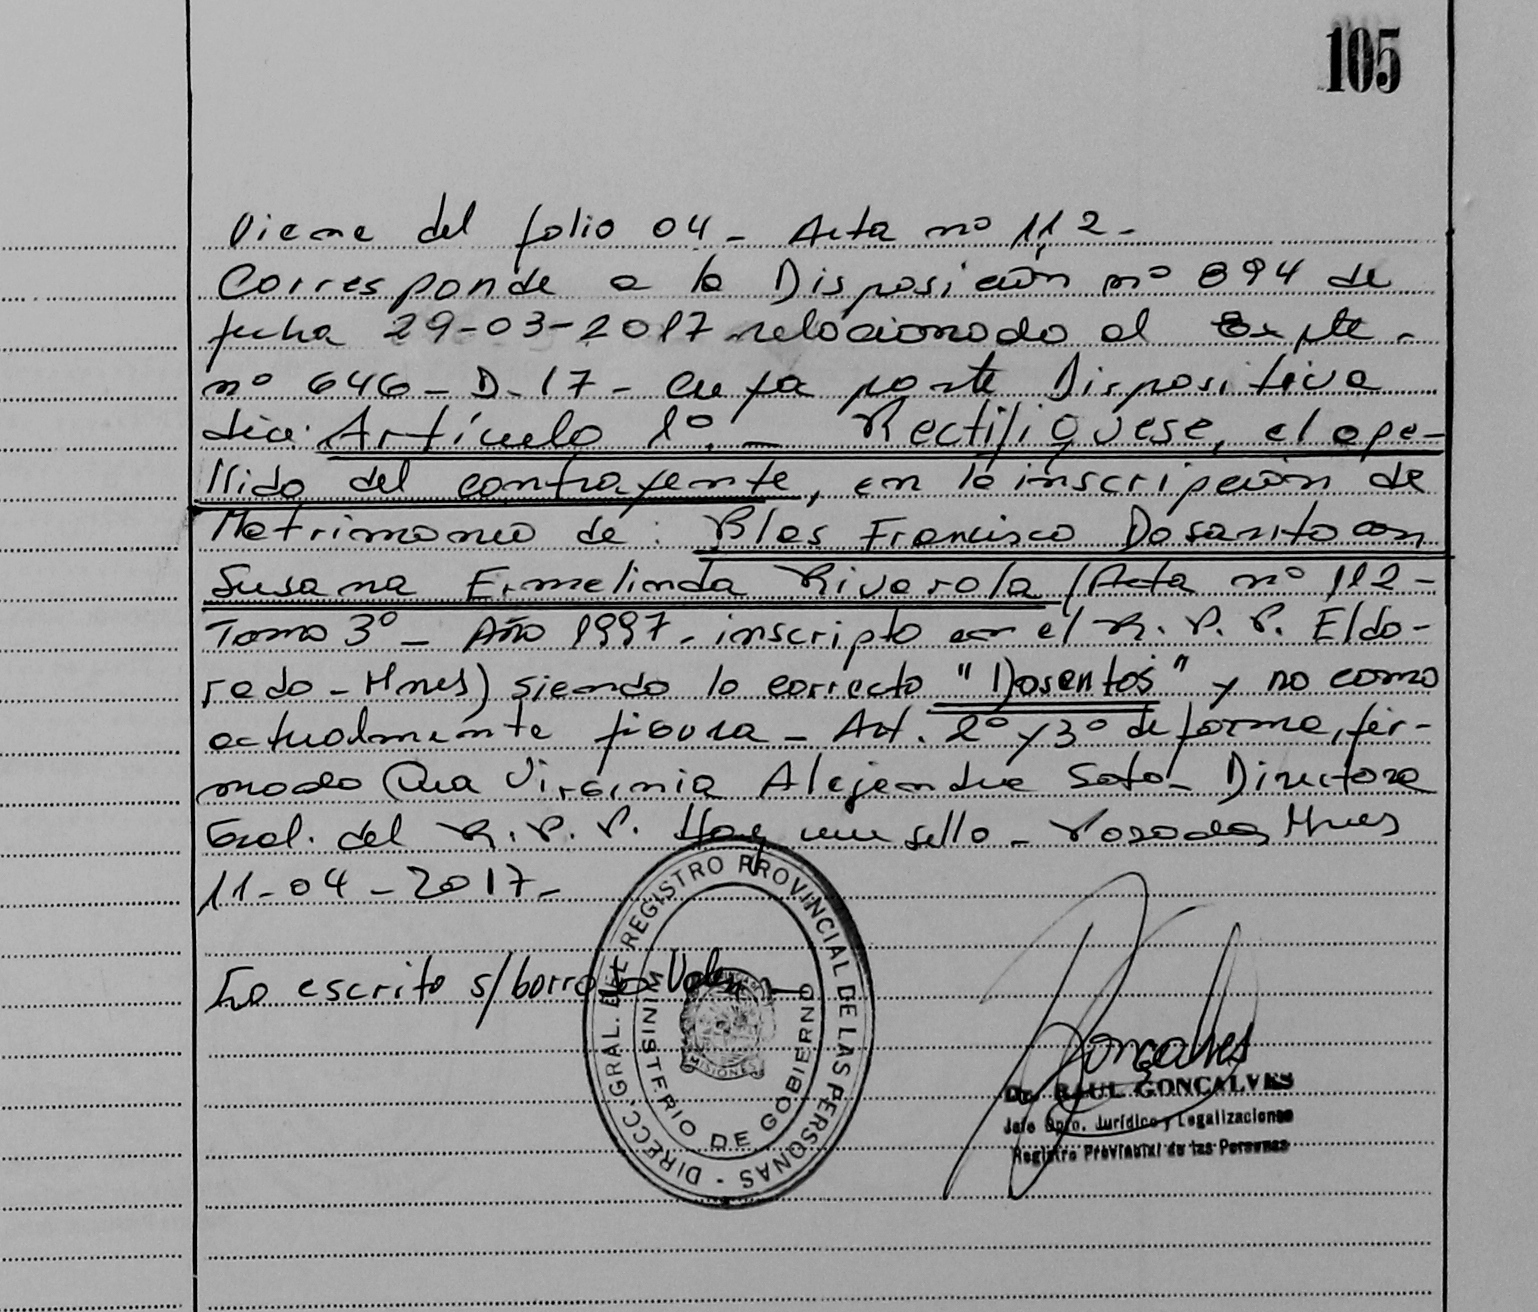 105
Viene del folio 04 - Acta nº 112 -
Corresponde a la Disposición nº 894 de
fecha 29-03-2017 relacionado al Expte -
nº 646 - D - 17 - cuya parte Dispositiva
dice: Artículo 1º - Rectifíquese, el ape-
llido del contrayente, en la inscripción de
Matrimonio de: Blas Francisco Dosanto con
Susana Ermelinda Riverola (Acta nº 112 -
Tomo 3º - Año 1997 - inscripto en el R. P. P. Eldo-
rado - Mnes) siendo lo correcto "Dosantos" y no como
actualmente figura - Art. 2º y 3º de forma, fir-
mado Dra Virginia Alejandra Soto - Directora
Gral. del R. P. P. Hay un sello - Posadas, Mnes
11-04-2017 -
Lo escrito s/borrado Vale
DIRECC. GRAL. DEL REGISTRO PROVINCIAL DE LAS PERSONAS -
MINISTERIO DE GOBIERNO
MISIONES
Gonçalves
Dr. RAUL GONÇALVES
Jefe Dpto. Jurídico y Legalizaciones
Registro Provincial de las Personas